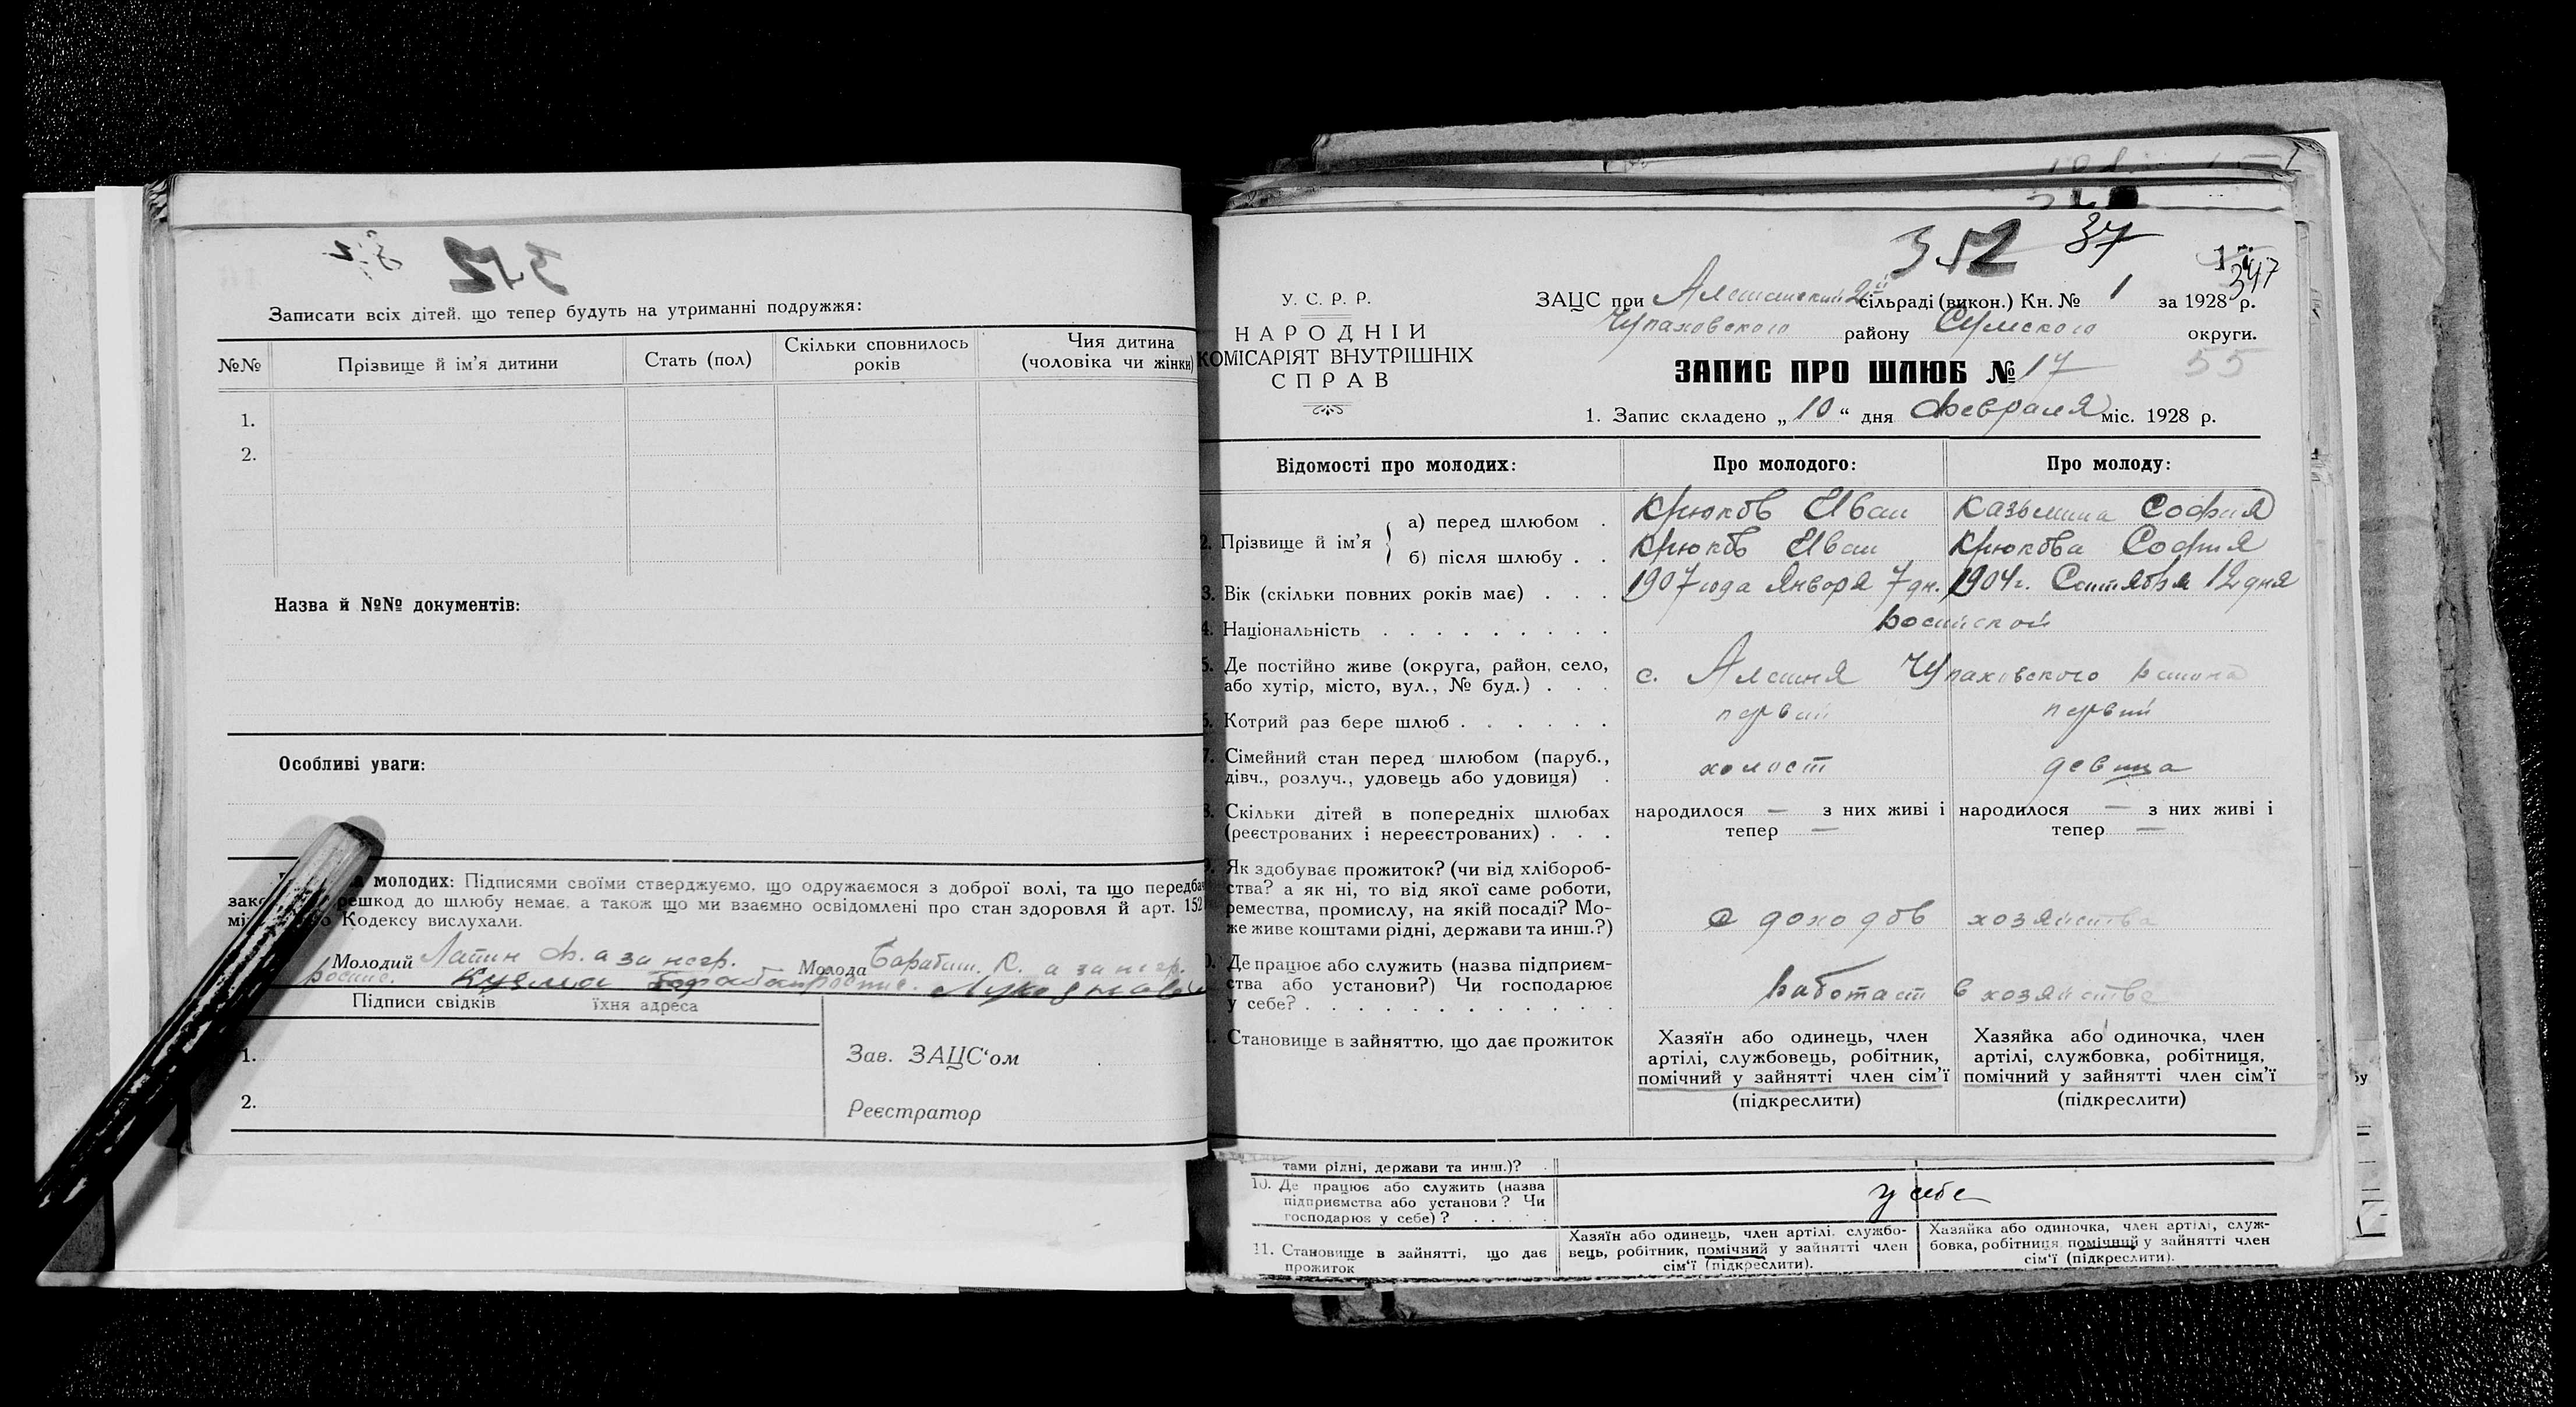 352
Записати всіх дітей, що тепер будуть на утриманні подружжя:
№№ Прізвище й ім'я дитини Стать (пол) Скільки сповнилось років Чия дитина (чоловіка чи жінки)
1.
2.
Назва й №№ документів:
Особливі уваги:
молодих: Підписями своїми стверджуємо, що одружаємося з доброї волі, та що передба
зако решкод до шлюбу немає, а також що ми взаємно освідомлені про стан здоровля й арт. 152
мі Кодексу вислухали.
Молодий Лапин Ф. а за негр. Молода Барабаш. К. а за негр.
роспис. Кузма роспис.
Підписи свідків їхня адреса
1.
2.
Зав. ЗАЦС'ом
Реєстратор
352 37
347
У. С. Р. Р.
НАРОДНІЙ
КОМІСАРІЯТ ВНУТРІШНІХ
СПРАВ
ЗАЦС при 2й сільраді (викон.) Кн. № 1 за 1928 р.
Чупаховского району Сумского округи.
ЗАПИС ПРО ШЛЮБ № 17
55
1. Запис складено „10“ дня Февраля міс. 1928 р.
Відомості про молодих: Про молодого: Про молоду:
2. Прізвище й ім'я
а) перед шлюбом . Крюков Иван Казьмина София
б) після шлюбу . . Крюков Иван Крюкова София
3. Вік (скільки повних років має) . . . 1907 года Января 7 дн. 1904 г. Сентября 12 дня
4. Національність . . . . . . . . . Росийской
5. Де постійно живе (округа, район, село,
або хутір, місто, вул., № буд.) . . . с. Алешня Чупаховского района
6. Котрий раз бере шлюб . . . . . . первий первий
7. Сімейний стан перед шлюбом (паруб.,
дівч., розлуч., удовець або удовиця) . холост девица
8. Скільки дітей в попередніх шлюбах
(реєстрованих і нереєстрованих) . . .
народилося — з них живі і тепер —
народилося — з них живі і тепер —
9. Як здобуває прожиток? (чи від хлібороб-
ства? а як ні, то від якої саме роботи,
ремества, промислу, на якій посаді? Мо-
же живе коштами рідні, держави та инш.?)
с доходов хозяйства
10. Де працює або служить (назва підприєм-
ства або установи?) Чи господарює
у себе? . . . . . . . . . . .
работает в хозяйстве
11. Становище в зайняттю, що дає прожиток
Хазяїн або одинець, член
артілі, службовець, робітник,
помічний у зайнятті член сім'ї
(підкреслити)
Хазяйка або одиночка, член
артілі, службовка, робітниця,
помічний у зайнятті член сім'ї
(підкреслити)
тами рідні, держави та инш.)?
10. Де працює або служить (назва
підприємства або установи? Чи
господарює у себе)? . . . . .
у себе
11. Становище в зайнятті, що дає
прожиток
Хазяїн або одинець, член артілі, службо-
вець, робітник, помічний у зайнятті член
сім'ї (підкреслити).
Хазяйка або одиночка, член артілі, служ-
бовка, робітниця, помічний у зайнятті член
сім'ї (підкреслити).